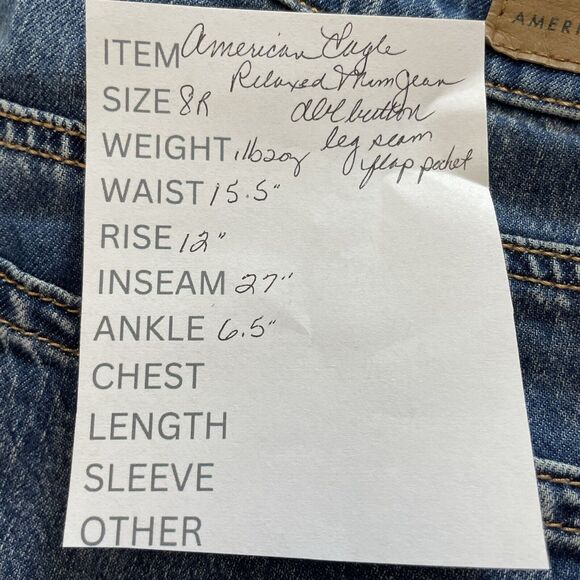 AMERI
ITEM American Eagle
Relaxed Mom Jean
SIZE 8R dbl button
WEIGHT 1lb2oz leg seam
flap pocket
WAIST 15.5"
RISE 12"
INSEAM 27"
ANKLE 6.5"
CHEST
LENGTH
SLEEVE
OTHER